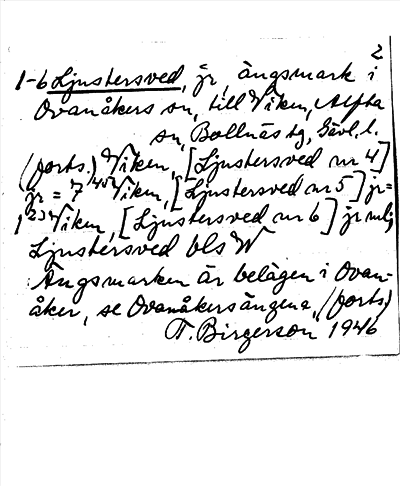 2
1-6 Ljustersved, jr, ängsmark i
Ovanåkers sn, till Viken, Alfta
sn, Bollnäs tg, Gävl. l.
(forts.) Viken, [Ljustersved nr 4]
jr = 7 Viken, [Ljustersved nr 5] jr =
1 Viken, [Ljustersved nr 6] jr
Ljustersved bls W
Ängsmarken är belägen i Ovan-
åker, se Ovanåkersängena, (forts)
T. Birgerson 1946